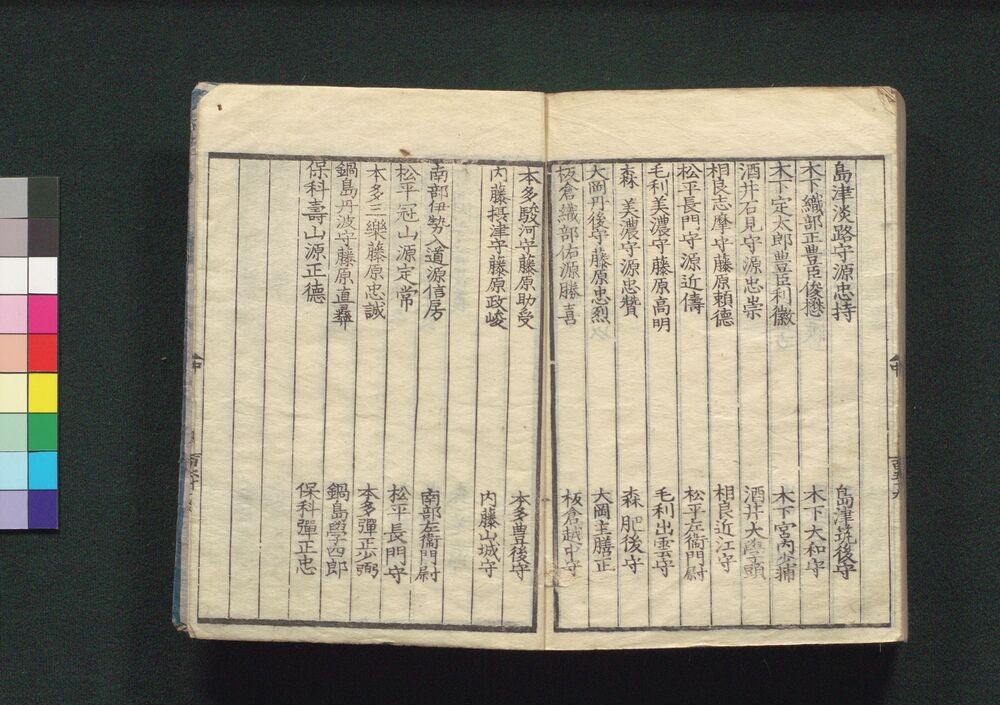 島津淡路守源忠持 島津筑後守
木下織部正豊臣俊懋 木下大和守
木下定太郎豊臣利徽 木下宮内少輔
酒井石見守源忠崇 酒井大學頭
相良志摩守藤原頼徳 相良近江守
松平長門守源近儔 松平左衞門尉
毛利美濃守藤原高明 毛利出雲守
森 美濃守源忠贊 森 肥後守
大岡丹後守藤原忠烈 大岡主膳正
板倉織部佑源勝喜 板倉越中守
中
百五十九
本多駿河守藤原助受 本多豊後守
内藤摂津守藤原政峻 内藤山城守
南部伊勢入道源信房 南部左衞門尉
松平冠山源定常 松平長門守
本多三樂藤原忠誠 本多彈正少弼
鍋島丹波守藤原直彜 鍋島學四郎
保科壽山源正徳 保科彈正忠
中
百六十